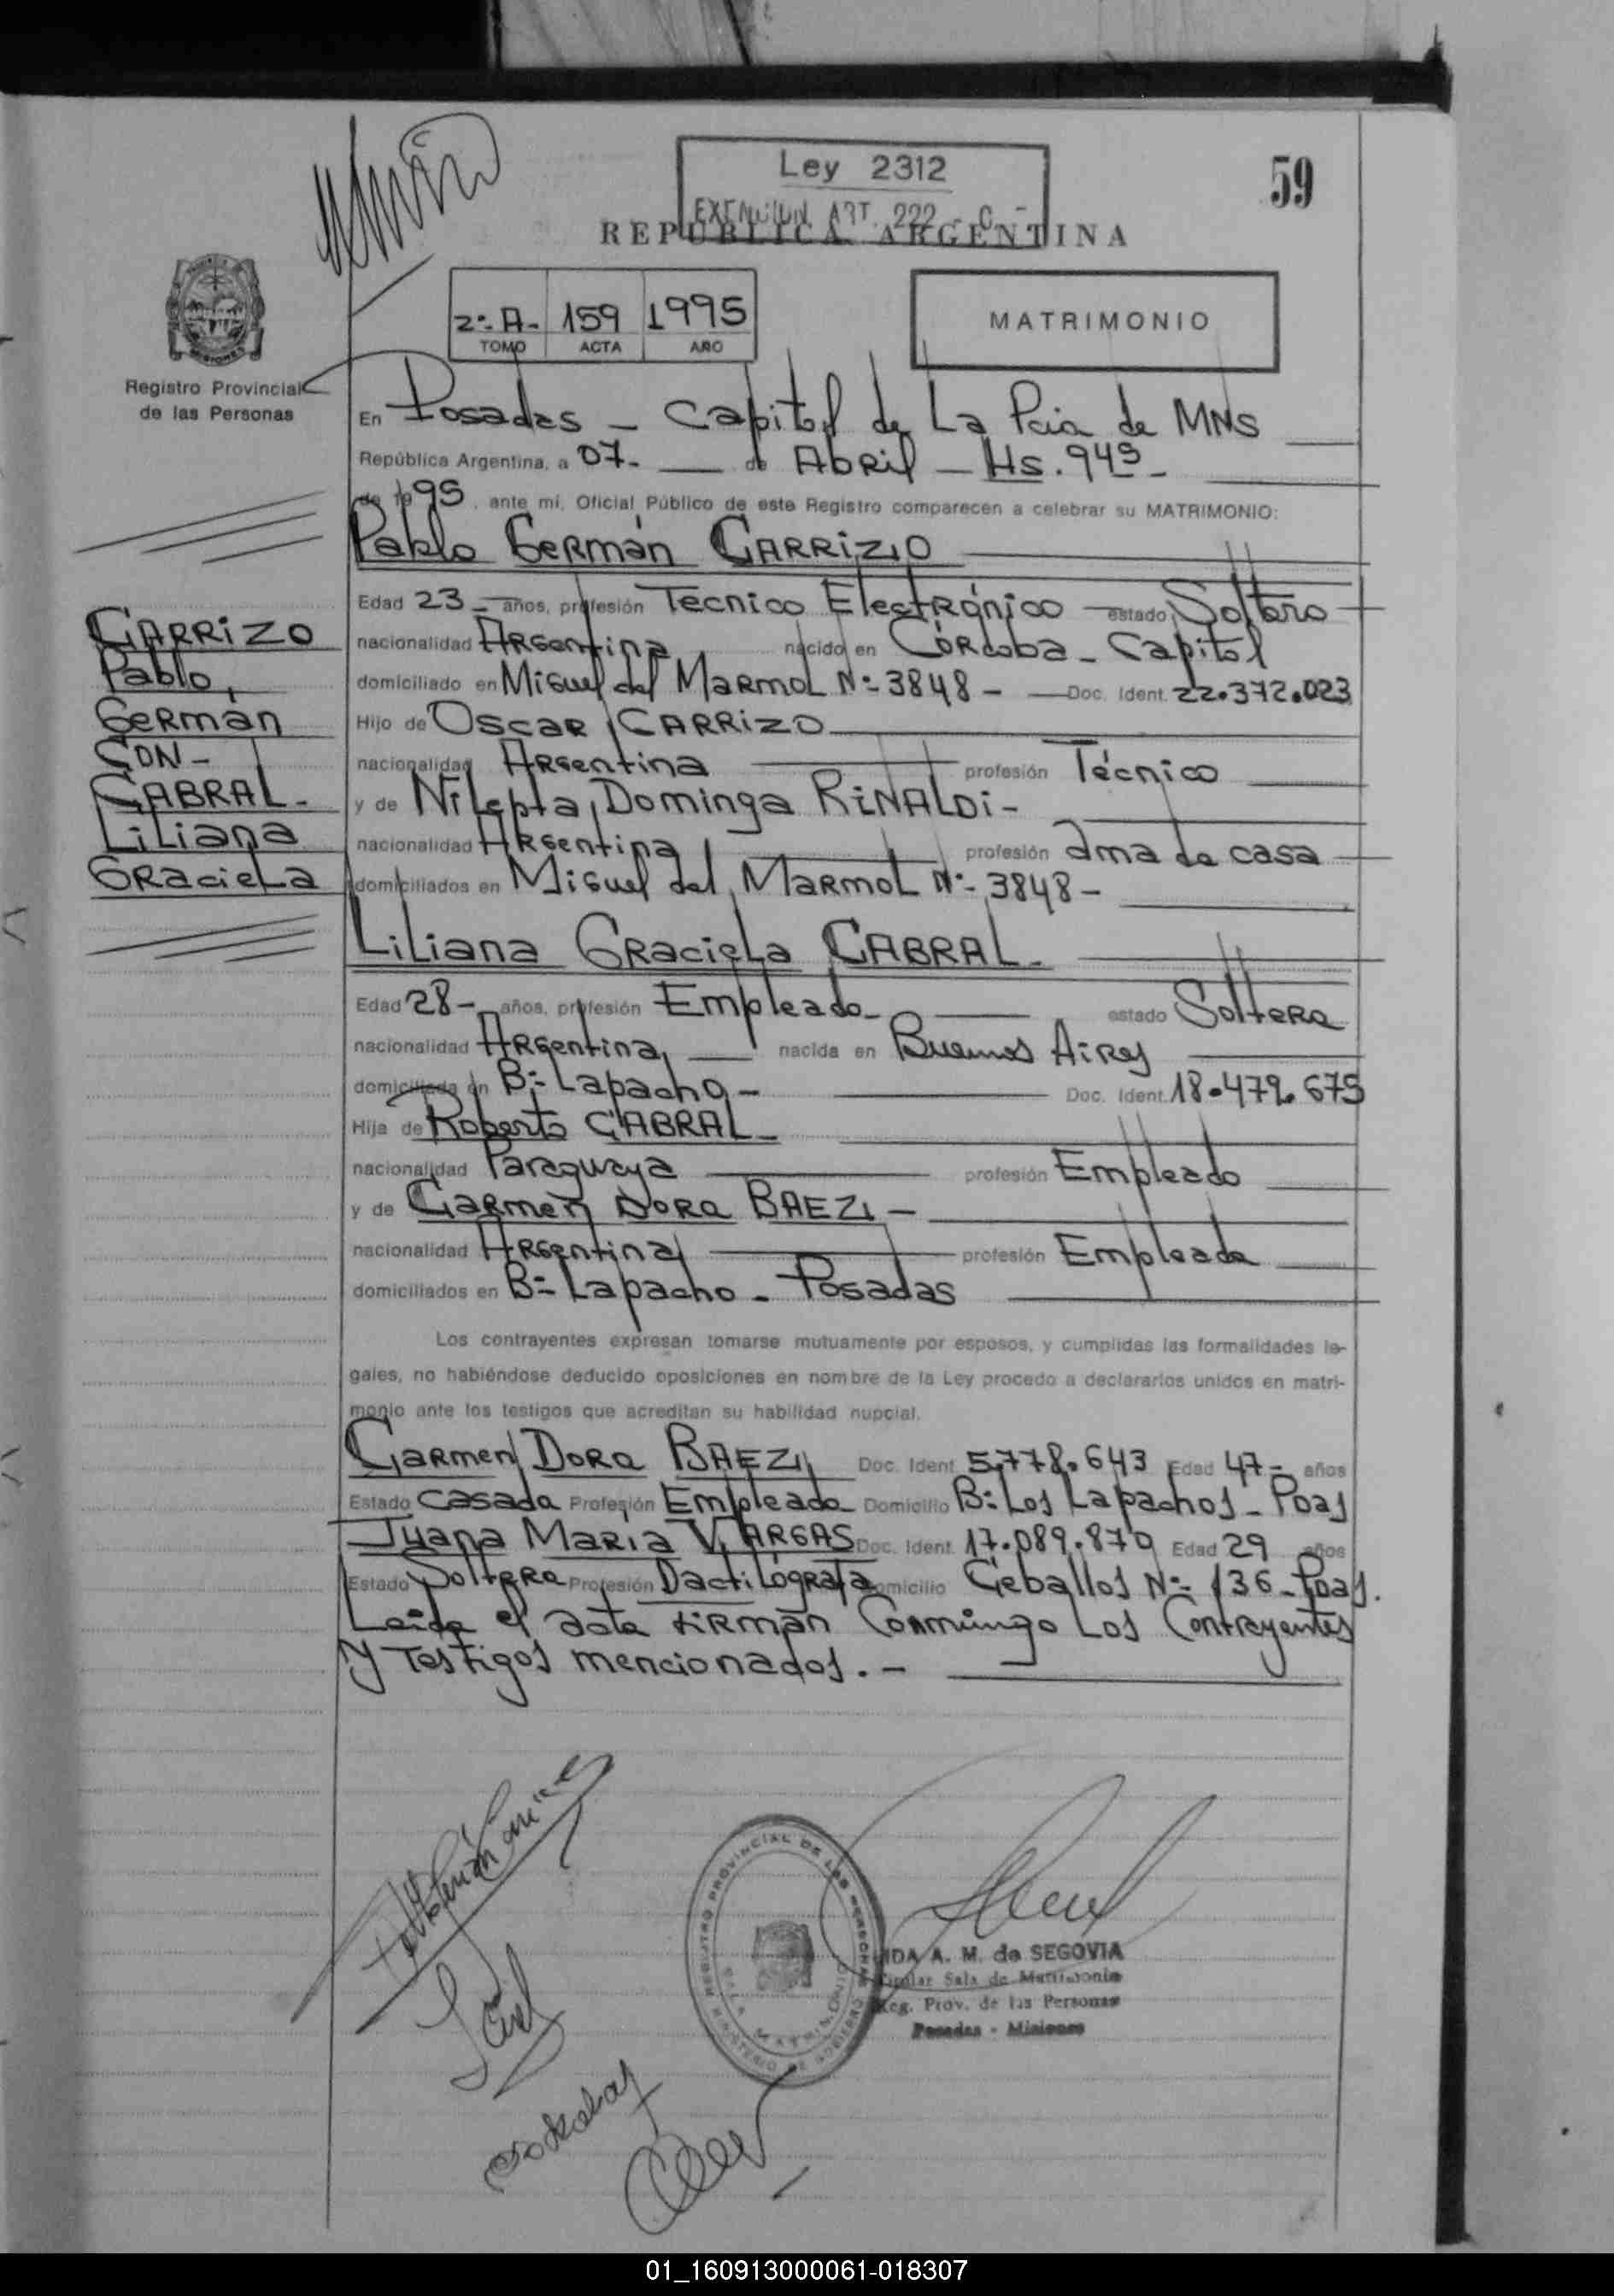 Ley 2312
EXENCION ART. 222 - C -
59
REPUBLICA ARGENTINA
2º A- 159 1995
TOMO ACTA AÑO
MATRIMONIO
Registro Provincial
de las Personas
En Posadas - Capital de La Pcia de MNS
República Argentina, a 07- de Abril - Hs. 945-
de 1995, ante mí, Oficial Público de este Registro comparecen a celebrar su MATRIMONIO:
Pablo Germán CARRIZO
Edad 23- años, profesión Tecnico Electrónico estado Soltero
nacionalidad Argentina nacido en Córdoba - Capital
domiciliado en Miguel del Marmol Nº 3848 - Doc. Ident. 22.372.023
Hijo de Oscar CARRIZO
nacionalidad Argentina profesión Técnico
y de Dominga RINALDI -
nacionalidad Argentina profesión ama de casa
domiciliados en Miguel del Marmol Nº 3848 -
CARRIZO
Pablo,
Germán
CON -
CABRAL -
Liliana
Graciela
Liliana Graciela CABRAL -
Edad 28- años, profesión Empleada - estado Soltera
nacionalidad Argentina nacida en Buenos Aires
domiciliada en Bº Lapacho - Doc. Ident. 18.479.675
Hija de Roberto CABRAL -
nacionalidad Paraguaya profesión Empleado
y de Carmen Dora BAEZ -
nacionalidad Argentina profesión Empleada
domiciliados en Bº Lapacho - Posadas
Los contrayentes expresan tomarse mutuamente por esposos, y cumplidas las formalidades le-
gales, no habiéndose deducido oposiciones en nombre de la Ley procedo a declararlos unidos en matri-
monio ante los testigos que acreditan su habilidad nupcial.
Carmen Dora BAEZ Doc. Ident. 5.778.643 Edad 47- años
Estado Casada Profesión Empleada Domicilio Bº Los Lapachos - Pdas
Juana Maria VARGAS Doc. Ident. 17.089.870 Edad 29 años
Estado Soltera Profesión Dactilógrafa Domicilio Ceballos Nº 136 - Pdas.
Leida el acta firman Conmingo Los Contrayentes
y Testigos mencionados. -
REGISTRO PROVINCIAL DE LAS PERSONAS
SALA MATRIMONIO
MINISTERIO DE GOBIERNO
A. M. de SEGOVIA
Titular Sala de Matrimonio
Reg. Prov. de las Personas
Posadas - Misiones
01_160913000061-018307